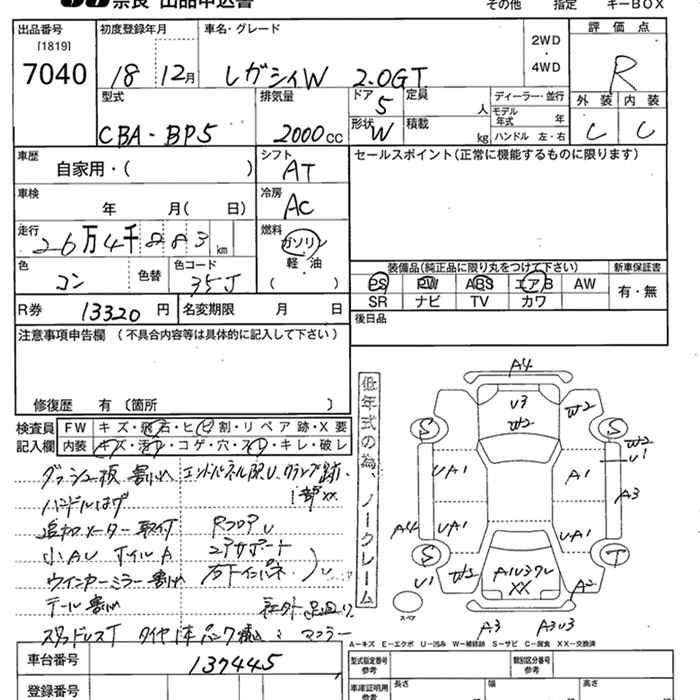 奈良 出品申込書
その他 指定 キーBOX
出品番号 初度登録年月 車名・グレード 2WD ・ 4WD 評価点
[1819]
7040 18 12月 レガシィW 2.0GT R
型式 排気量 ドア 5 定員 人 ディーラー・並行 外装 内装
モデル年式 年
CBA-BP5 2000cc 形状 W 積載 kg ハンドル 左・右 C C
車歴 自家用・( ) シフト AT セールスポイント(正常に機能するものに限ります)
車検 年 月( 日) 冷房 AC
走行 26万4千883km 燃料 ガソリン 軽・油 ( )
装備品(純正品に限り丸をつけて下さい) 新車保証書
色 コン 色替 色コード 35J PS PW ABS エアB AW 有・無
SR ナビ TV カワ
R券 13320円 名変期限 月 日
後日品
注意事項申告欄 (不具合内容等は具体的に記入して下さい)
修復歴 有 〔箇所 〕
検査員 FW キズ・飛石・ヒビ割・リペア跡・X要
記入欄 内装 キズ・汚れ・コゲ・穴・スレ・キレ・破レ
低年式の為、ノークレーム
ダッシュ板 割れ エンドパネル
ハンドルはげ
追加メーター取付 RフロアU
小AU ホイルA コアサポート
ウインカーミラー割れ
テール割れ
スタッドレスT マフラー
A4
U3
W2 W2
S S
W2
U1
UA1 A1
A3
A4 UA1 UA1
S T
U1 W2 A2
XX
スペア
A3 A3U3
A−キズ E−エクボ U−凹み W−補修跡 S−サビ C−腐食 XX−交換済
車台番号 137445
型式指定番号 参考 類別区分番号 参考
登録番号
車庫証明用 参考 長さ 幅 高さ